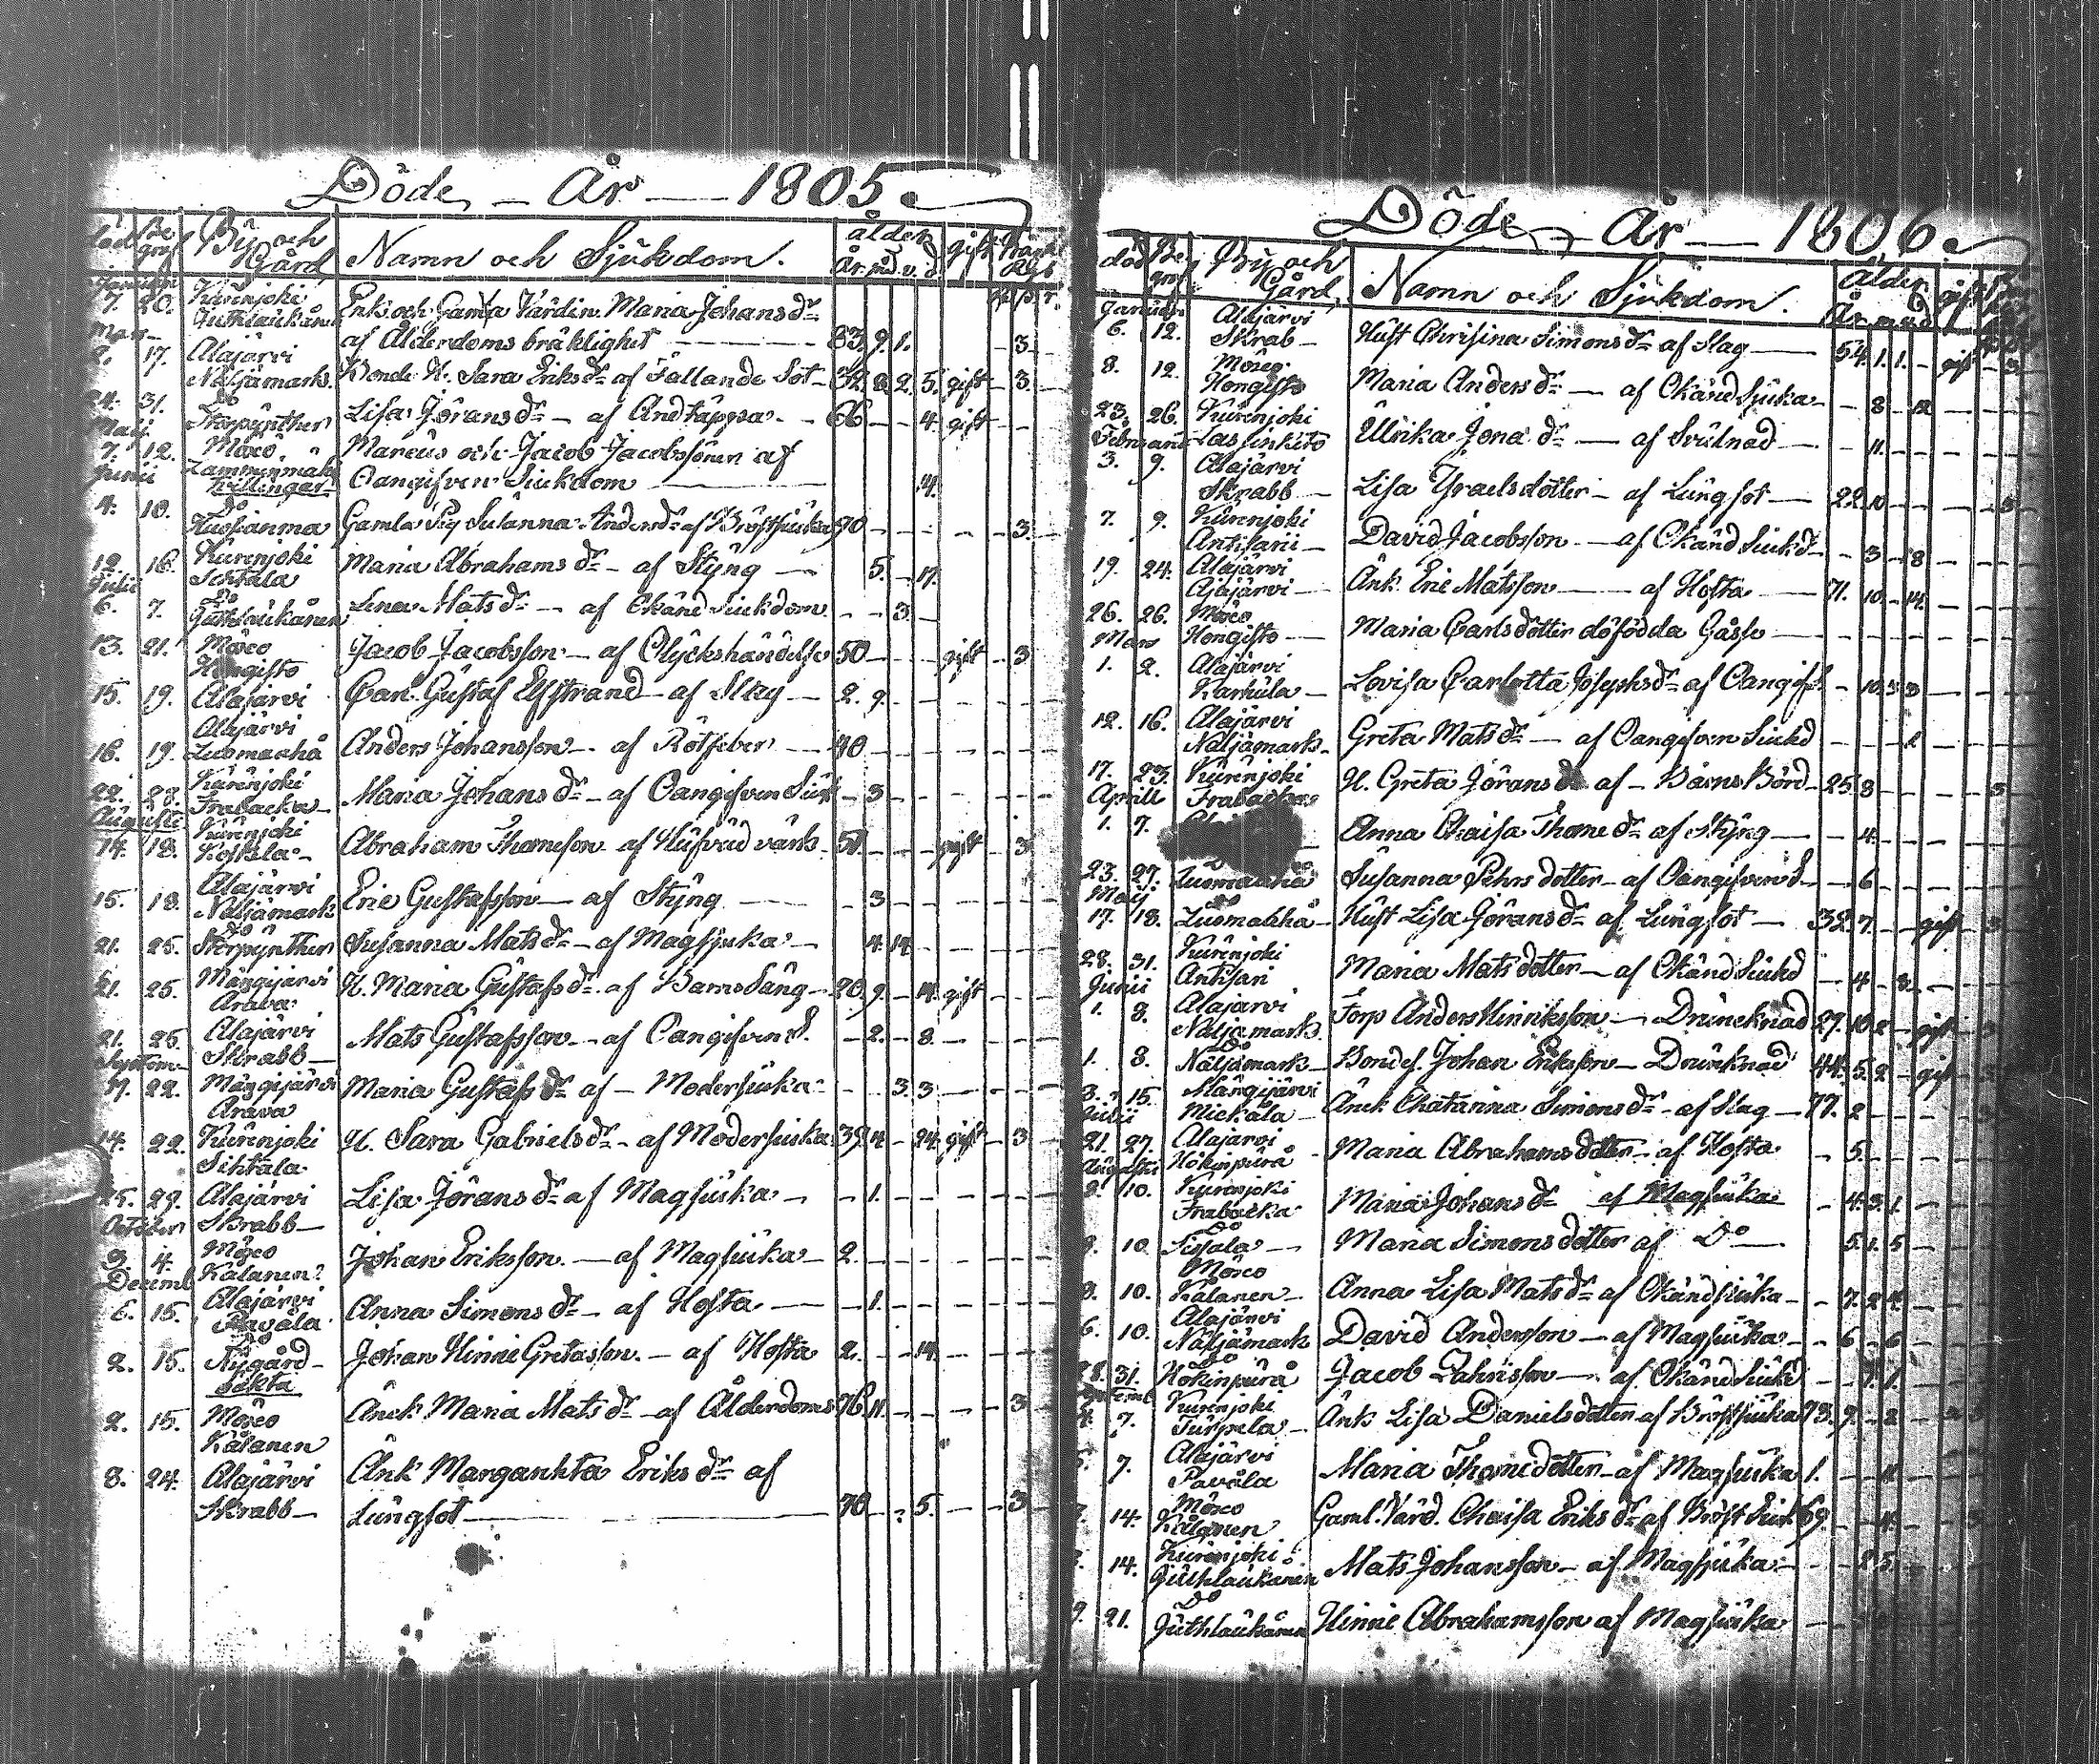 Döde – År – 1805.
död Be graf By och Gård Namn och Sjükdom. ålder År. m. v. d. gift
Januari Kürenjoki
7. 20. Güthlaükånen Enk. och Gamla Värdin. Maria Johans dr
Mars af Ålderdoms bräklighet 83. 9. 1. 3.
17. Alajärvi
Näljämark. Bonde H. Sara Eriks dr af Fallande Sot 32. 8. 2. 5. gift 3.
24. 31. Do
Storpynther Lisa Görans dr – af Andtäppa. 66 4. gift
Maij
7. 12. Möxö Marcüs och Jacob Jacobssöner af
Lamminmäki Tvillingar Oangifven Siukdom
Junii
4. 10. Do
Gamla Pig Susanna Anders dr af Bröstsiüka 70 3.
12. 16. Kürenjoki
Sihtala Maria Abrahams dr – af Styng 5. 17.
Julii
6. 7. Do
Güthlaükånen Lena Mats dr – af Okänd Siukdom 3.
13. 21. Möxö
Hongisto Jacob Jacobsson – af Olyckshändelse 50 gift 3
15. 19. Alajärvi Carl Güstaf Elfstrand – af Slag 2. 9.
Alajärvi
16. 19. Luomaahå Anders Johansson – af Rötfeber 40
22. 28. Kürenjoki
Frabacka Maria Johans dr – af Oangifven Siük 3
Augusti
14. 18. Kürenjoki
Koskela Abraham Thomsson af Hüfvüd värk gift 3
15. 18. Alajärvi
Näljämark Eric Gustafsson – af Styng 3
21. 25. Do
Storpynther Susanna Mats dr – af Magsjuka 4. 14
21. 25. Mängijärvi
Arava H. Maria Güstafs dr af Barns Säng 20. 9. gift
21. 25. Alajärvi
Skrabb Mats Güstafsson – af Oangifven S. 2. 8.
Septem.
22. Mängijärvi
Arava Maria Gustafs dr af – Modersiüka 3. 3
14. 22. Kürenjoki
Sihtala H. Sara Gabriels dr – af Modersiuka 39. 4 24. gift 3
25. 29. Alajärvi
Skrabb Lisa Jörans dr af Magsiüka – 1.
October
3. 4. Möxö
Kålanen Johan Eriksson – af Magsiüka 2.
Decemb
6. 15. Alajärvi
Pavåla Anna Simons dr – af Hosta 1.
2. 15. Do
Nygård Johan Hinric Gretasson. – af Hosta 2. 14.
oäkta
2. 15. Möxö
Kålanen Änck Maria Mats dr – af Ålderdoms 76. 11. 3
8. 24. Alajärvi Änk Margarehta Eriks dr af
Skrabb – Lüngsot 70 5. 3
Döde – År – 1806.
död Be graf By och Gård Namn och Sjükdom. Ålder År m. v. d. gift
Januari
6. 12. Alajärvi
Skrab – Hüst Chrisina Simons dr af Slag 54. 1. 1. gift 3
8. 12. Möxö
Hongisto Maria Anders dr – af Okänd Sjüka 8 12
23. 26. Kürenjoki
Ülrika Jona dr – af Svülnad 11.
Februarii
3. 9. Alajärvi
Skrabb Lisa Ysraels dotter – af Lüngsot 22. 10
7. 9. Kürenjoki
Antisarii David Jacobsson – af Okänd Siukd 3 8
19. 24. Alajärvi
Alajärvi Änk. Eric Matsson – af Hosta 71. 10 14.
26. 26. Möxö
Hongisto Maria Carls dotter döfödda Gåsse
Mars
1. 2. Alajärvi
Karhüla Lovisa Carlotta Josephs dr af Oangif. 10. 3 3
12. 16. Alajärvi
Näljämark Greta Mats dr – af Oangifven Siukd
17. 23. Kürenjoki
Frabacka H. Greta Jörans dr af – Barns Börd 25. 8
Aprill
1. 7. Anna Chaisa Thome dr af Styng 4.
23. 27. Do
Luomaahå Susanna Pehrs dotter – af Oangifven S 6
Maij
17. 18. Do
Lüomahhå Hüst Lisa Görans dr af Lüngsot 32. 7. gift 3
28. 31. Kürenjoki
Antisari Maria Mats dotter – af Okänd Siukd 4 3
Junii
1. 8. Alajärvi
Näljämark. Torp Anders Hinriksson – Drüncknad 29. 10 2 gift 3
1. 8. Do
Näljämark Bondes. Johan Eriksson – Drunknad 44. 5. 2 gift
3. 15. Mängijärvi
Mickåla Änck Chatarina Simons dr – af Slag 77. 2
Julii
21. 27. Alajärvi
Hökinpürå Maria Abrahams dotter – af Hosta 5.
Augusti
10. Kürenjoki
Frabacka Maria Johans dr af Magsiüka 4. 3. 1.
10. Do
Maria Simons dotter af Do 5. 1. 5
10. Möxö
Kålanen Anna Lisa Mats dr af Okänd siuka 7. 2
6. 10. Alajärvi
Näljämark David Andersson – af Magsiüka 6 6
31. Do
Hökinpürå Jacob Zahrisson – af Okänd Siükd 1. 1.
Septemb
7. Kürenjoki
Türpela Änk Lisa Daniels dotter af Bröstsiüka 73. 9. 2
7. Alajärvi
Pavåla Maria Thome dotter – af Magsiüka 1. 11
14. Möxö
Kålanen Gaml. Värd. Chaisa Eriks dr af Bröst Siuk 69. 11.
14. Kürenjoki
Güthlaükånen Mats Johansson – af Magsiüka 5.
21. Do
Güthlaükånen Hinric Abrahamsson af Magsiüka